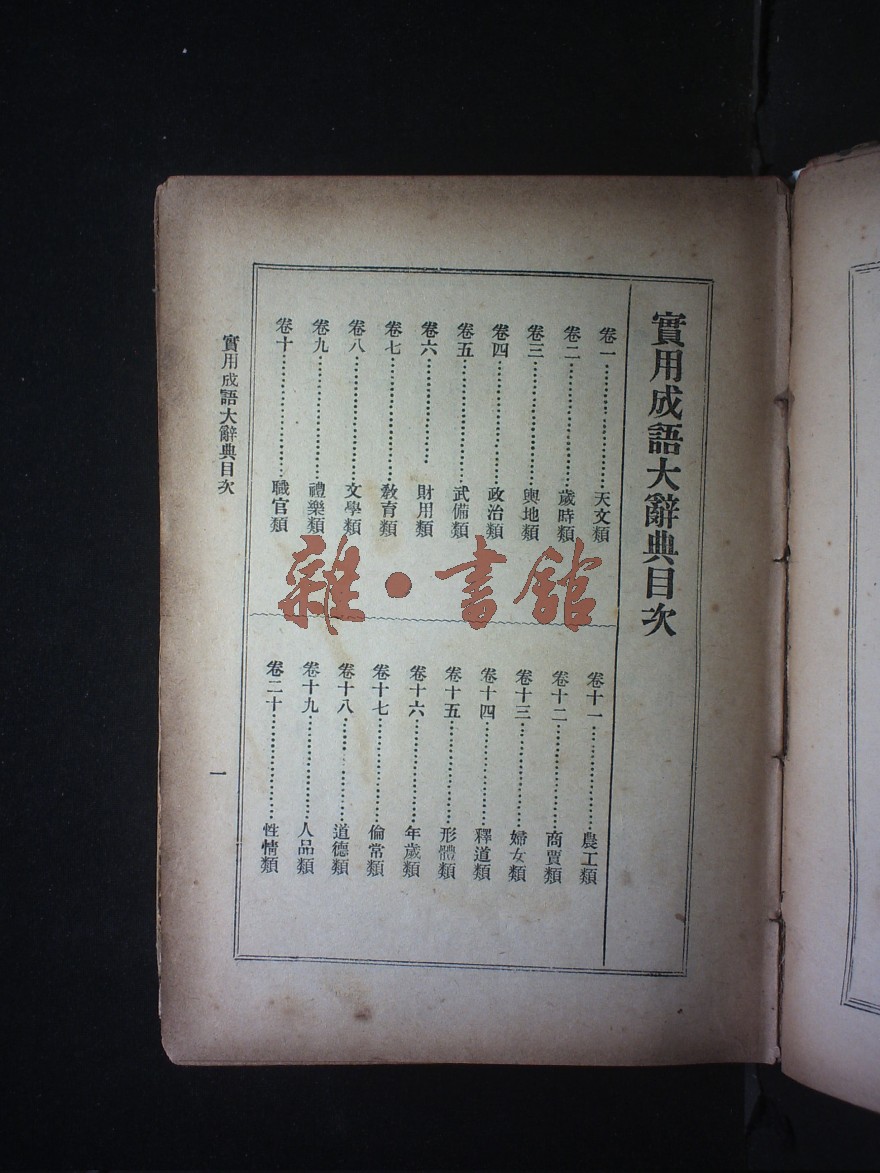 實用成語大辭典目次
卷一…………………天文類
卷二…………………歲時類
卷三…………………輿地類
卷四…………………政治類
卷五…………………武備類
卷六…………………財用類
卷七…………………教育類
卷八…………………文學類
卷九…………………禮樂類
卷十…………………職官類
卷十一…………………農工類
卷十二…………………商賈類
卷十三…………………婦女類
卷十四…………………釋道類
卷十五…………………形體類
卷十六…………………年歲類
卷十七…………………倫常類
卷十八…………………道德類
卷十九…………………人品類
卷二十…………………性情類
實用成語大辭典目次
一
雜·書館